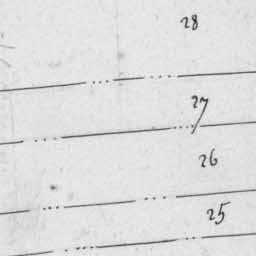 28
27
26
25